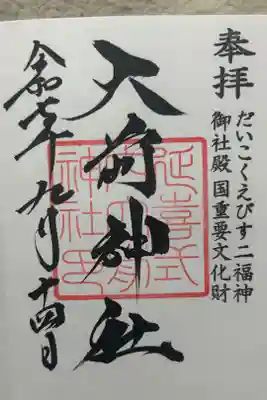 奉拝
だいこくえびす二福神
御社殿国重要文化財
大前神社
延喜式
神社
令和七年九月十四日